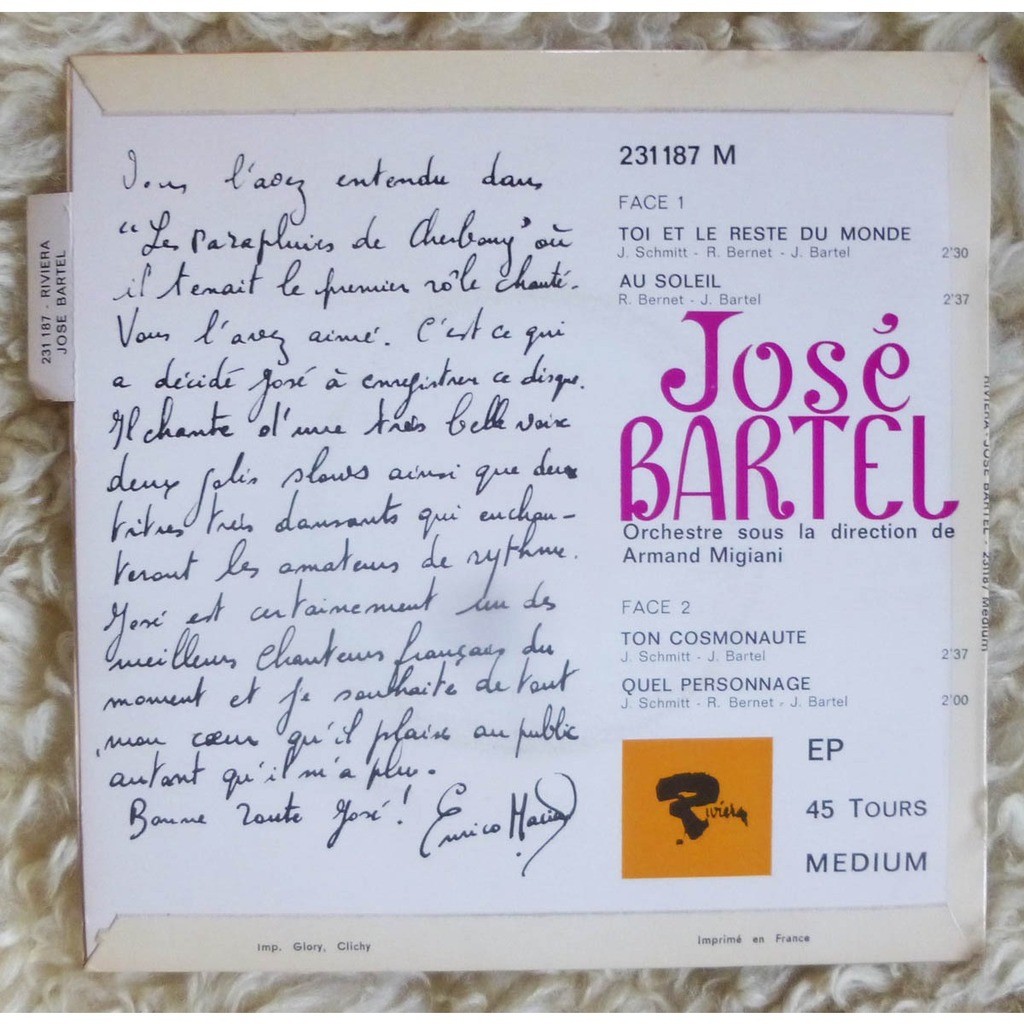 Vous l'avez entendu dans
"Les Parapluies de Cherbourg" où
il tenait le premier rôle chanté.
Vous l'avez aimé. C'est ce qui
a décidé José à enregistrer ce disque.
Il chante d'une très belle voix
deux jolis slows ainsi que deux
titres très dansants qui enchan-
teront les amateurs de rythme.
José est certainement un des
meilleurs chanteurs français du
moment et je souhaite de tout
mon cœur qu'il plaise au public
autant qu'il m'a plu.
Bonne route José !
Enrico Macias
231187 M
FACE 1
TOI ET LE RESTE DU MONDE
J. Schmitt - R. Bernet - J. Bartel 2'30
AU SOLEIL
R. Bernet - J. Bartel 2'37
José
BARTEL
Orchestre sous la direction de
Armand Migiani
FACE 2
TON COSMONAUTE
J. Schmitt - J. Bartel 2'37
QUEL PERSONNAGE
J. Schmitt - R. Bernet - J. Bartel 2'00
Riviera
EP
45 TOURS
MEDIUM
231187 - RIVIERA
JOSE BARTEL
RIVIERA - JOSE BARTEL - 231187 Medium
Imp. Glory, Clichy
Imprimé en France